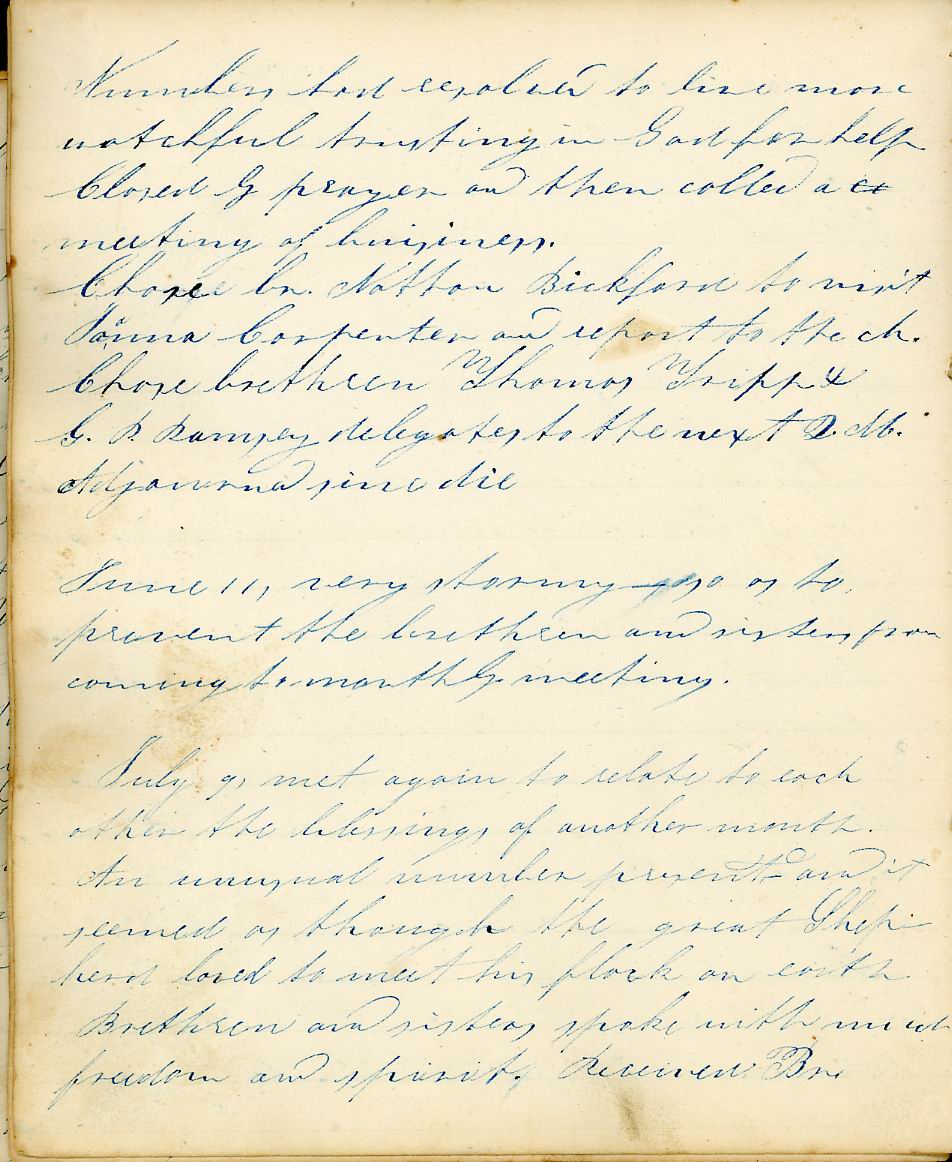 Numbers had resolved to live more
watchful trusting in God for help
Closed by prayer and then called a
meeting of buisiness.
Chose br. Nathan Bickford to visit
Carpenter and report to the ch.
Chose brethren Thomas Tripp &
G. P. Ramsey delegates to the next Q. M.
Adjourned sine die
June 11, very stormy so as to
prevent the brethren and sisters from
coming to monthly meeting.
July 9, met again to relate to each
other the blessings of another month.
An unusual number present and it
seemed as though the great Shep-
herd loved to meet his flock on earth
Brethren and sisters spoke with much
freedom and spirit. Received Bro